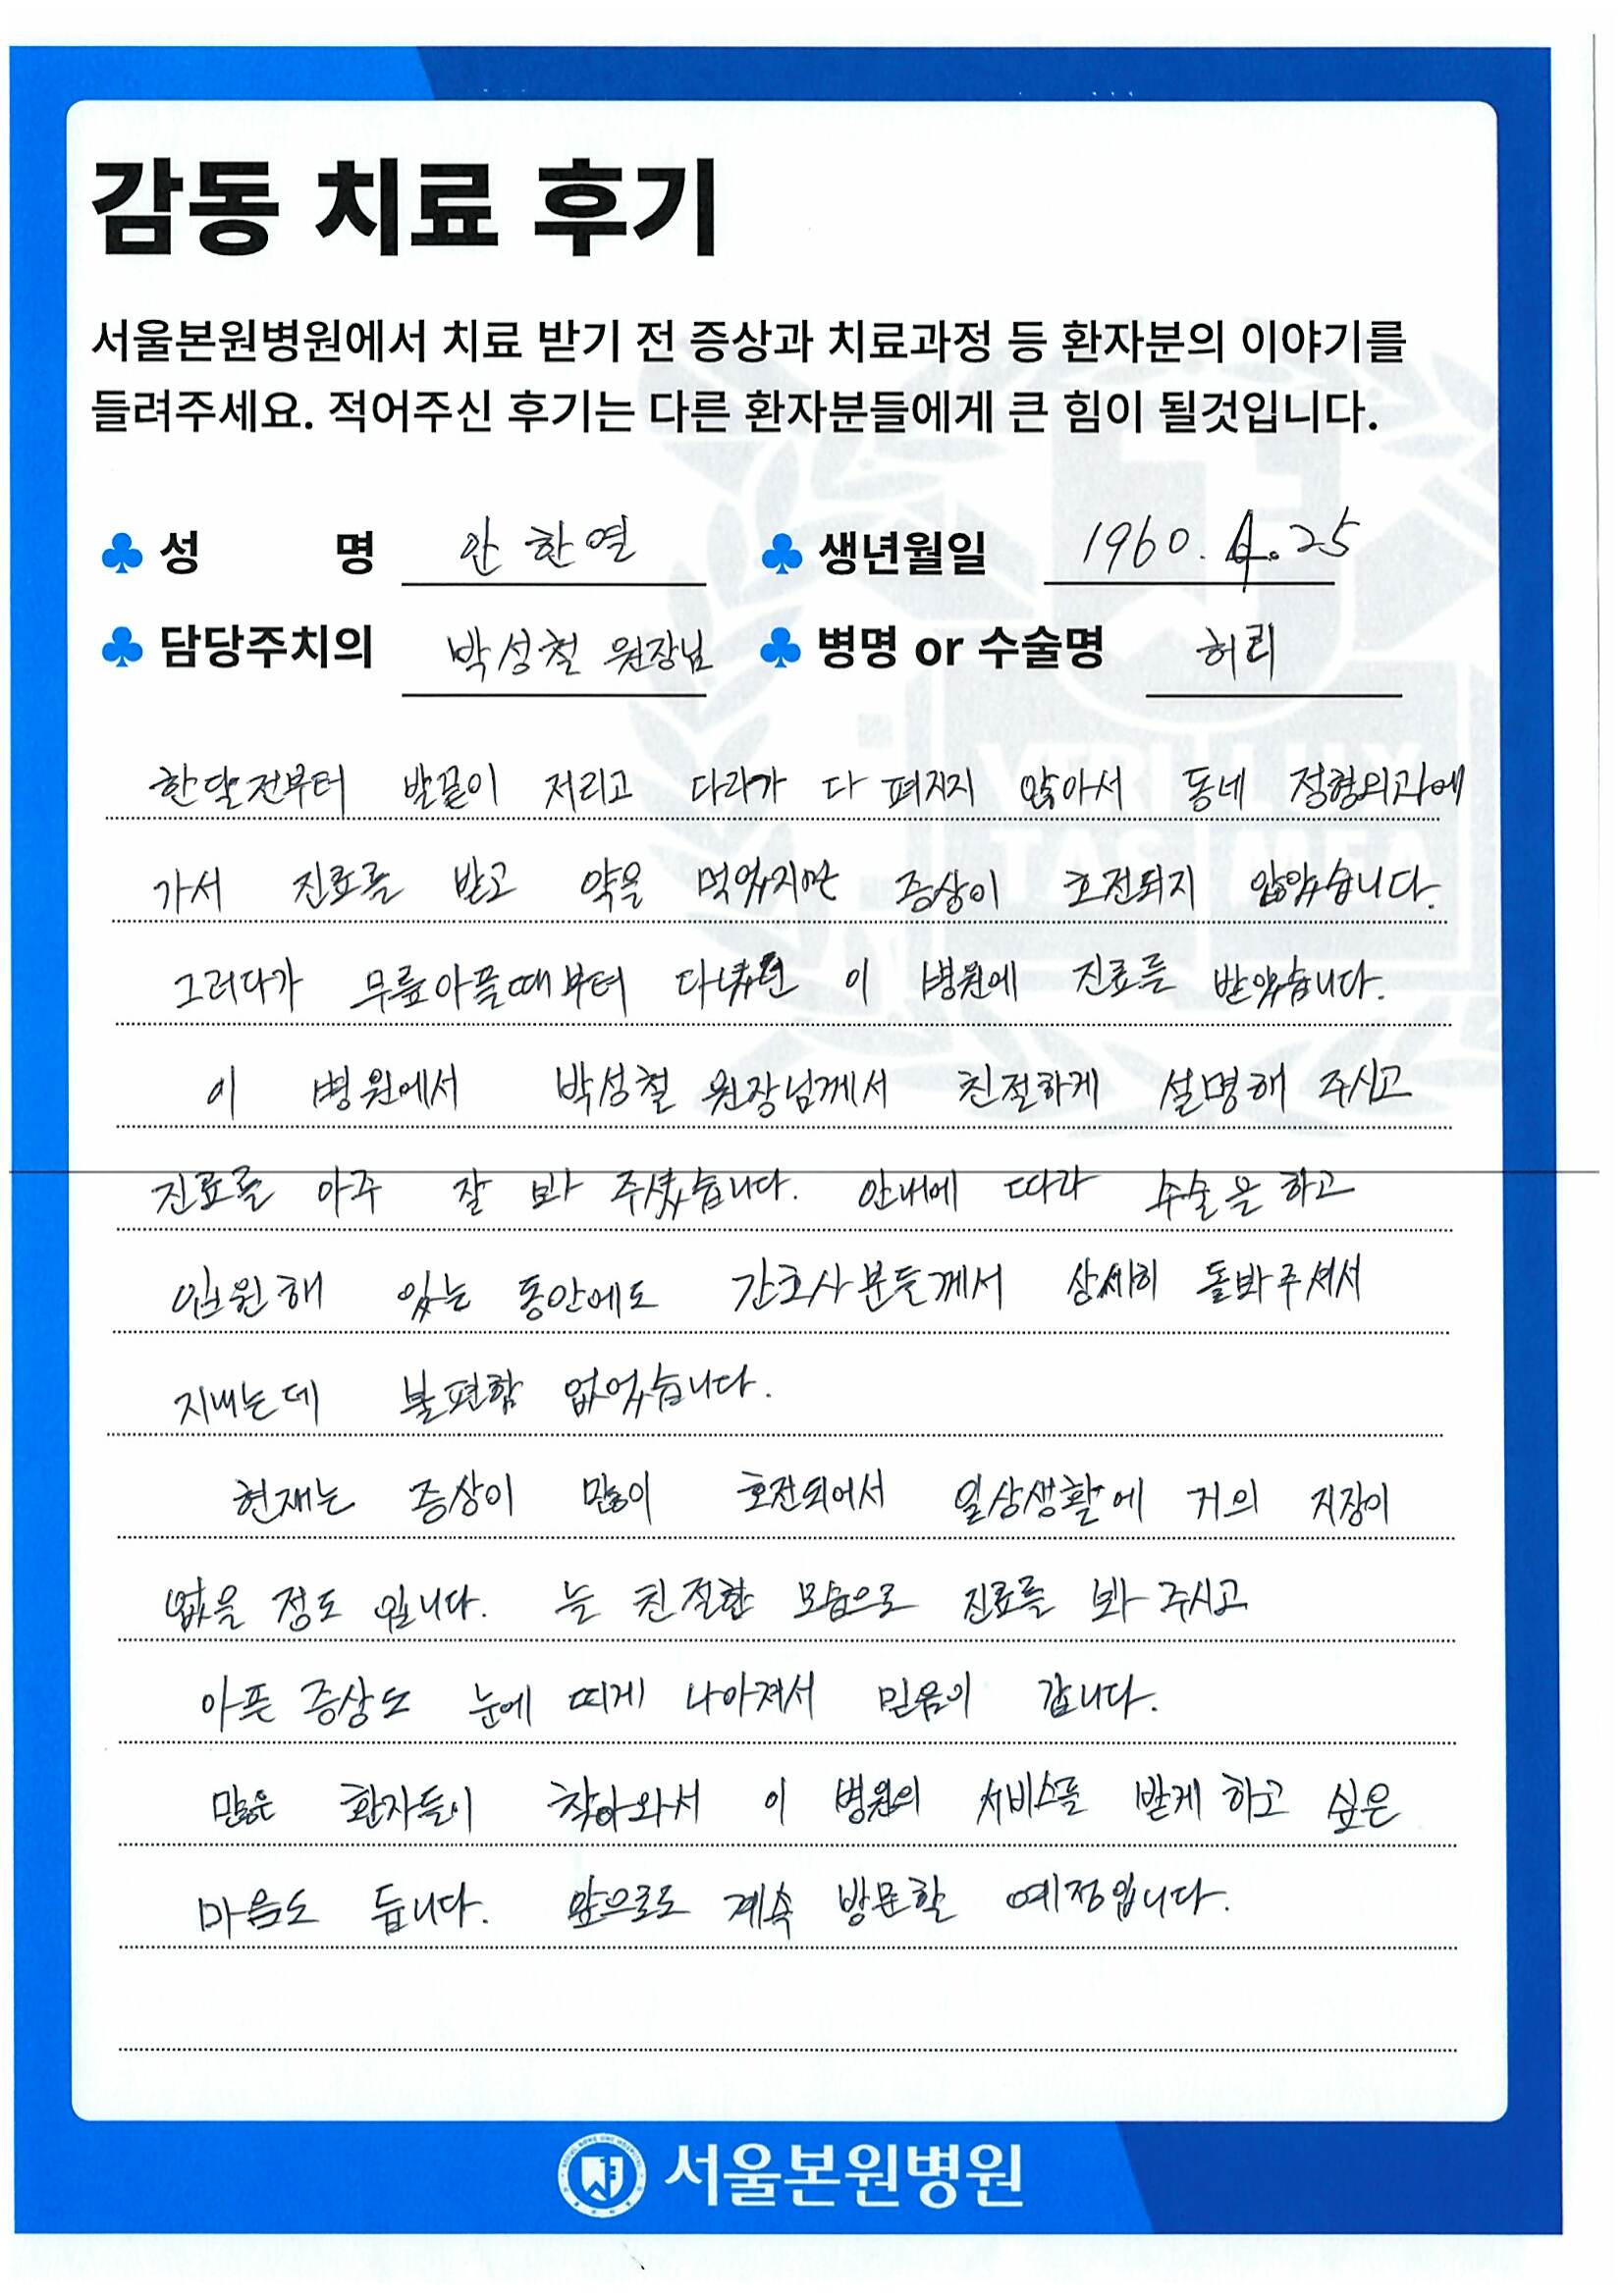 감동 치료 후기
서울본원병원에서 치료 받기 전 증상과 치료과정 등 환자분의 이야기를
들려주세요. 적어주신 후기는 다른 환자분들에게 큰 힘이 될것입니다.
성 명 안한열 생년월일 1960. 4. 25
담당주치의 박성철 원장님 병명 or 수술명 허리
한달전부터 발끝이 저리고 다리가 다 펴지지 않아서 동네 정형외과에
가서 진료를 받고 약을 먹었지만 증상이 호전되지 않았습니다.
그러다가 무릎아플때부터 다녔던 이 병원에 진료를 받았습니다.
이 병원에서 박성철 원장님께서 친절하게 설명해 주시고
진료를 아주 잘 봐 주셨습니다. 안내에 따라 수술을 하고
입원해 있는 동안에도 간호사분들께서 상세히 돌봐주셔서
지내는데 불편함 없었습니다.
현재는 증상이 많이 호전되어서 일상생활에 거의 지장이
없을 정도 입니다. 늘 친절한 모습으로 진료를 봐 주시고
아픈 증상도 눈에 띠게 나아져서 믿음이 갑니다.
많은 환자들이 찾아와서 이 병원의 서비스를 받게 하고 싶은
마음도 듭니다. 앞으로도 계속 방문할 예정입니다.
서울본원병원